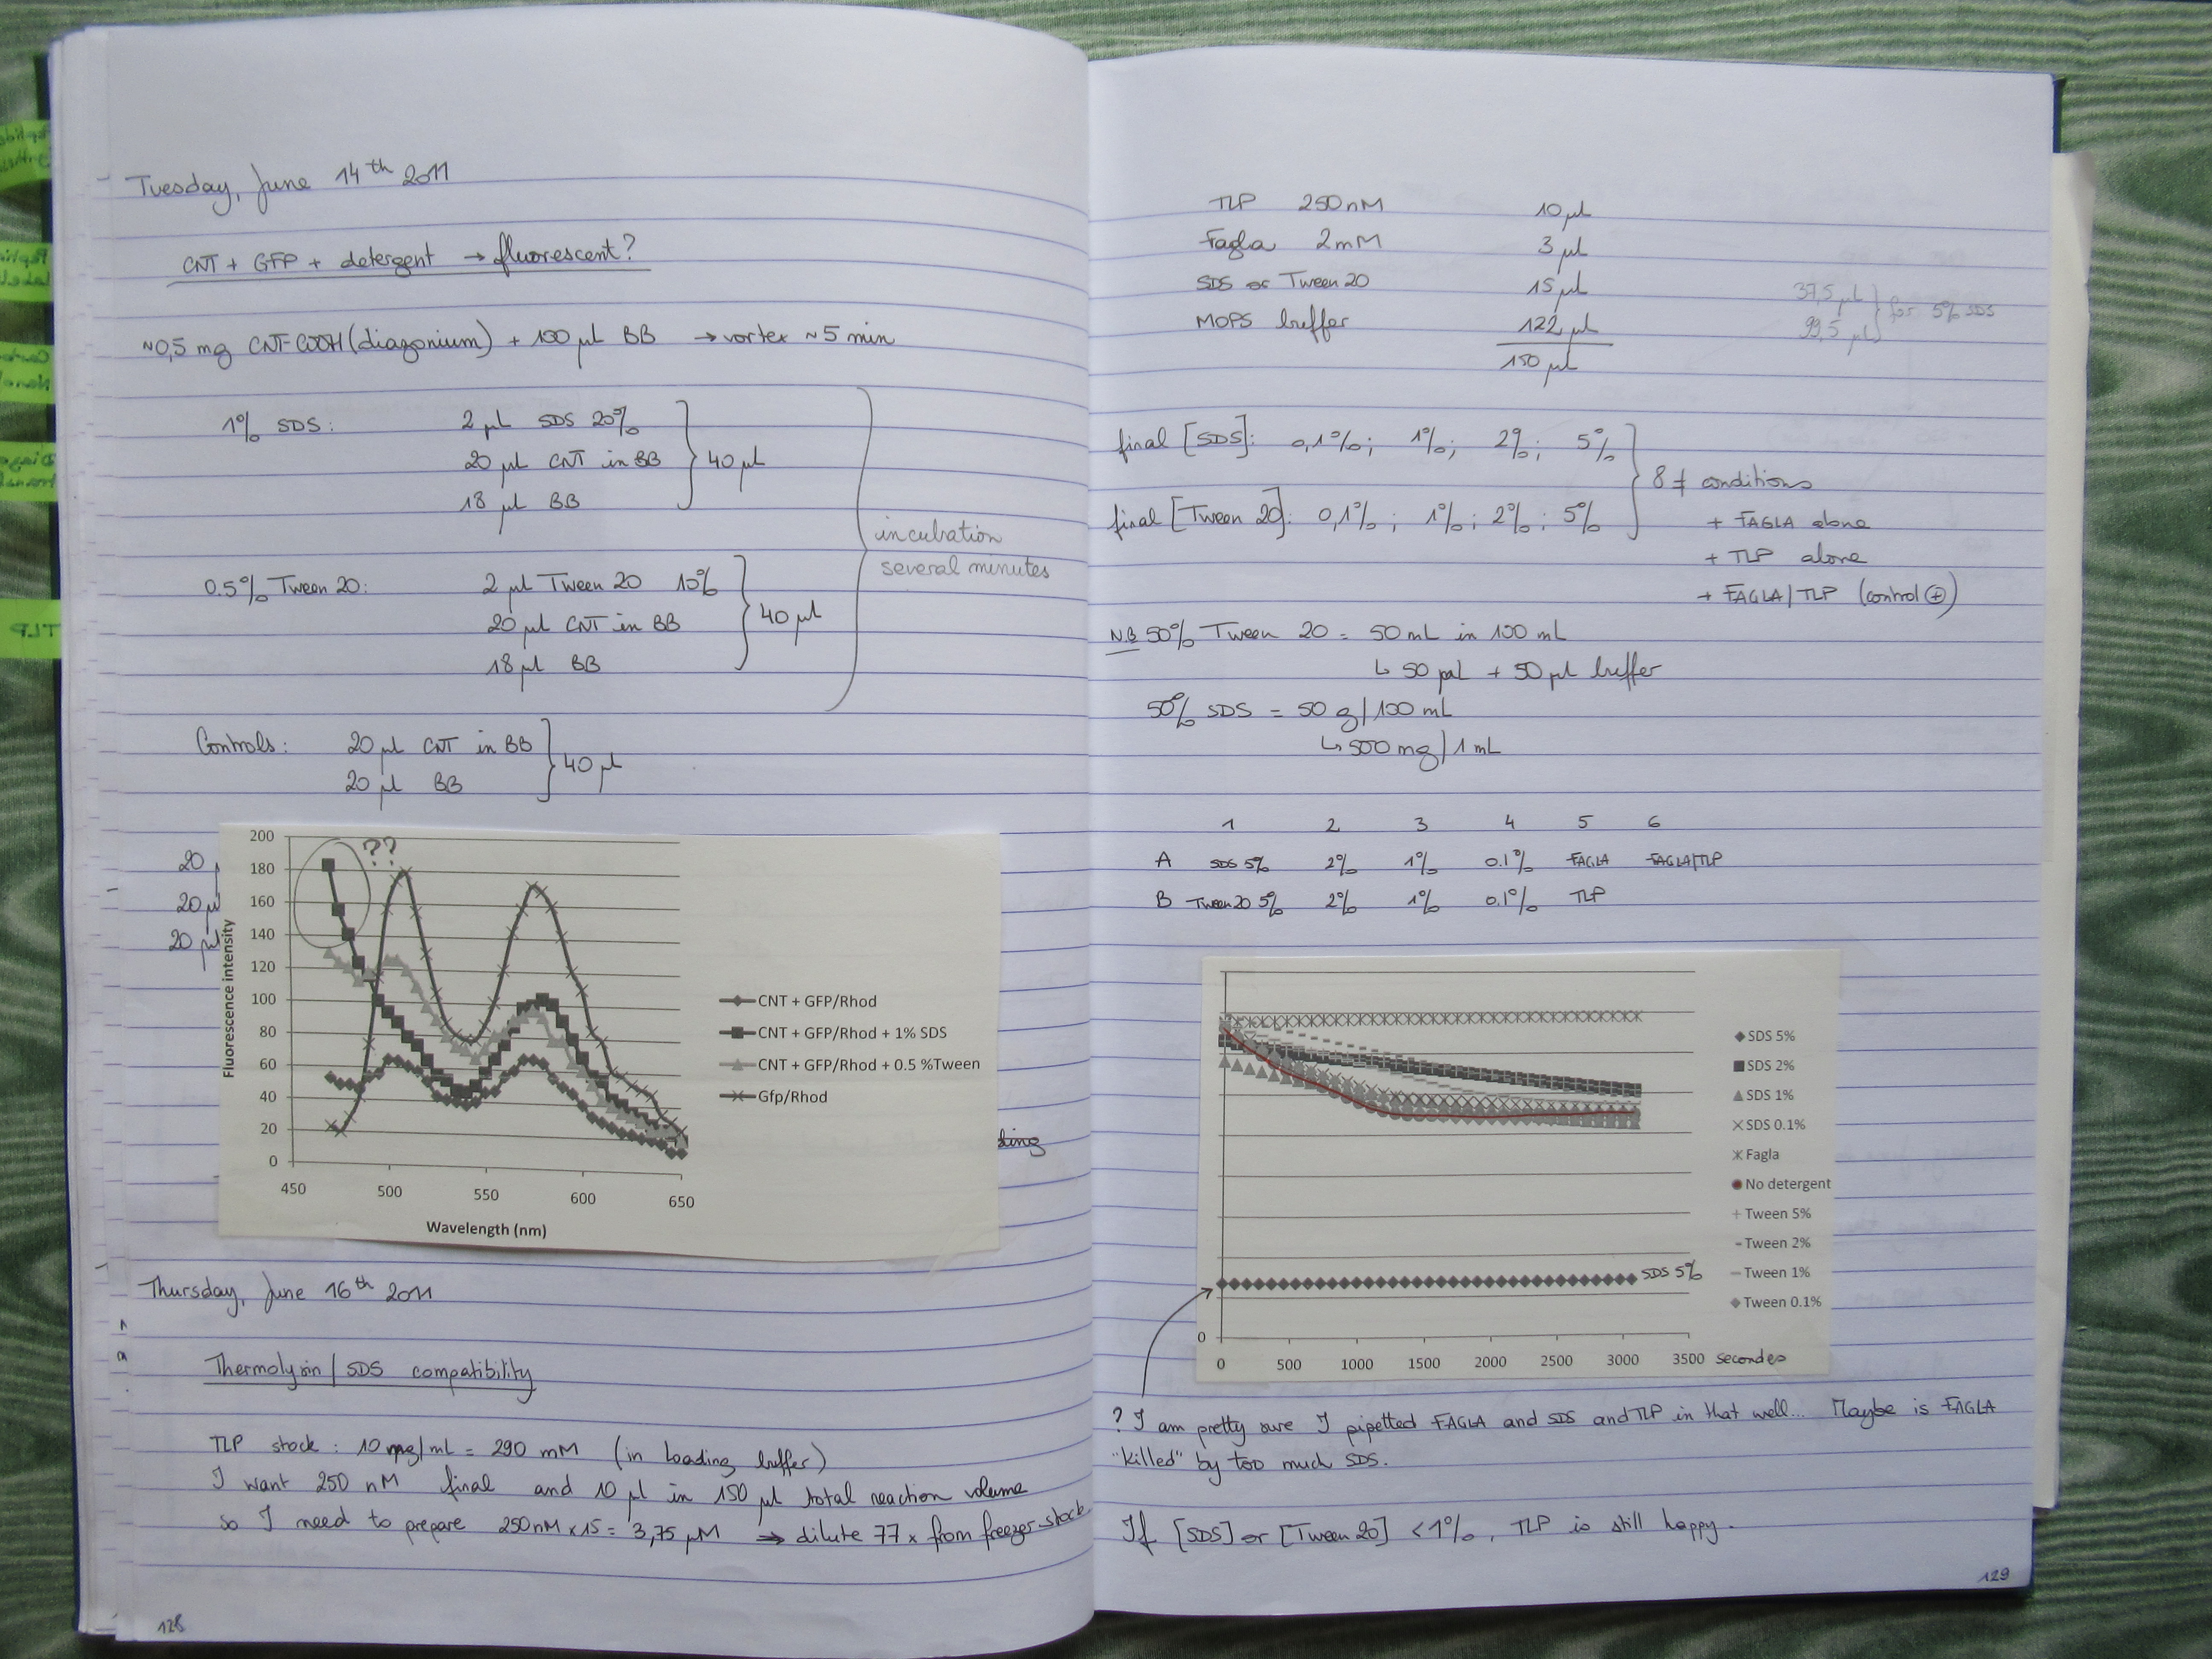 Tuesday, June 14th 2011
CNT + GFP + detergent → fluorescent?
~0,5 mg CNT-COOH (diazonium) + 100 µL BB → vortex ~5 min
1% SDS: 2 µL SDS 20%
20 µL CNT in BB
18 µL BB
40 µL
0.5% Tween 20: 2 µL Tween 20 10%
20 µL CNT in BB
18 µL BB
40 µL
incubation
several minutes
Controls: 20 µL CNT in BB
20 µL BB
40 µL
20
20 µl
20 µl
200
180
160
140
120
100
80
60
40
20
0
Fluorescence intensity
??
450 500 550 600 650
Wavelength (nm)
CNT + GFP/Rhod
CNT + GFP/Rhod + 1% SDS
CNT + GFP/Rhod + 0.5 %Tween
Gfp/Rhod
ding
Thursday, June 16th 2011
Thermolysin / SDS compatibility
TLP stock: 10 mg/mL = 290 mM (in Loading buffer)
I want 250 nM final and 10 µl in 150 µl total reaction volume
so I need to prepare 250nM x 15 = 3,75 µM → dilute 77 x from freezer stock
128
TLP 250nM 10 µL
Fagla 2mM 3 µL
SDS or Tween 20 15 µL
MOPS buffer 122 µL
150 µL
37,5 µL
99,5 µL
for 5% SDS
final [SDS]: 0,1%; 1%; 2%; 5%
final [Tween 20]: 0,1%; 1%; 2%; 5%
8 ≠ conditions
+ FAGLA alone
+ TLP alone
+ FAGLA/TLP (control ⊕)
N.B 50% Tween 20 = 50 mL in 100 mL
↳ 50 µL + 50 µL buffer
50% SDS = 50 g/100 mL
↳ 500 mg/1 mL
1 2 3 4 5 6
A SDS 5% 2% 1% 0.1% FAGLA FAGLA/TLP
B Tween 20 5% 2% 1% 0.1% TLP
SDS 5%
SDS 2%
SDS 1%
SDS 0.1%
Fagla
No detergent
Tween 5%
Tween 2%
Tween 1%
Tween 0.1%
SDS 5%
0
0 500 1000 1500 2000 2500 3000 3500 secondes
? I am pretty sure I pipetted FAGLA and SDS and TLP in that well... Maybe is FAGLA
"killed" by too much SDS.
If [SDS] or [Tween 20] <1%, TLP is still happy.
129
TLP